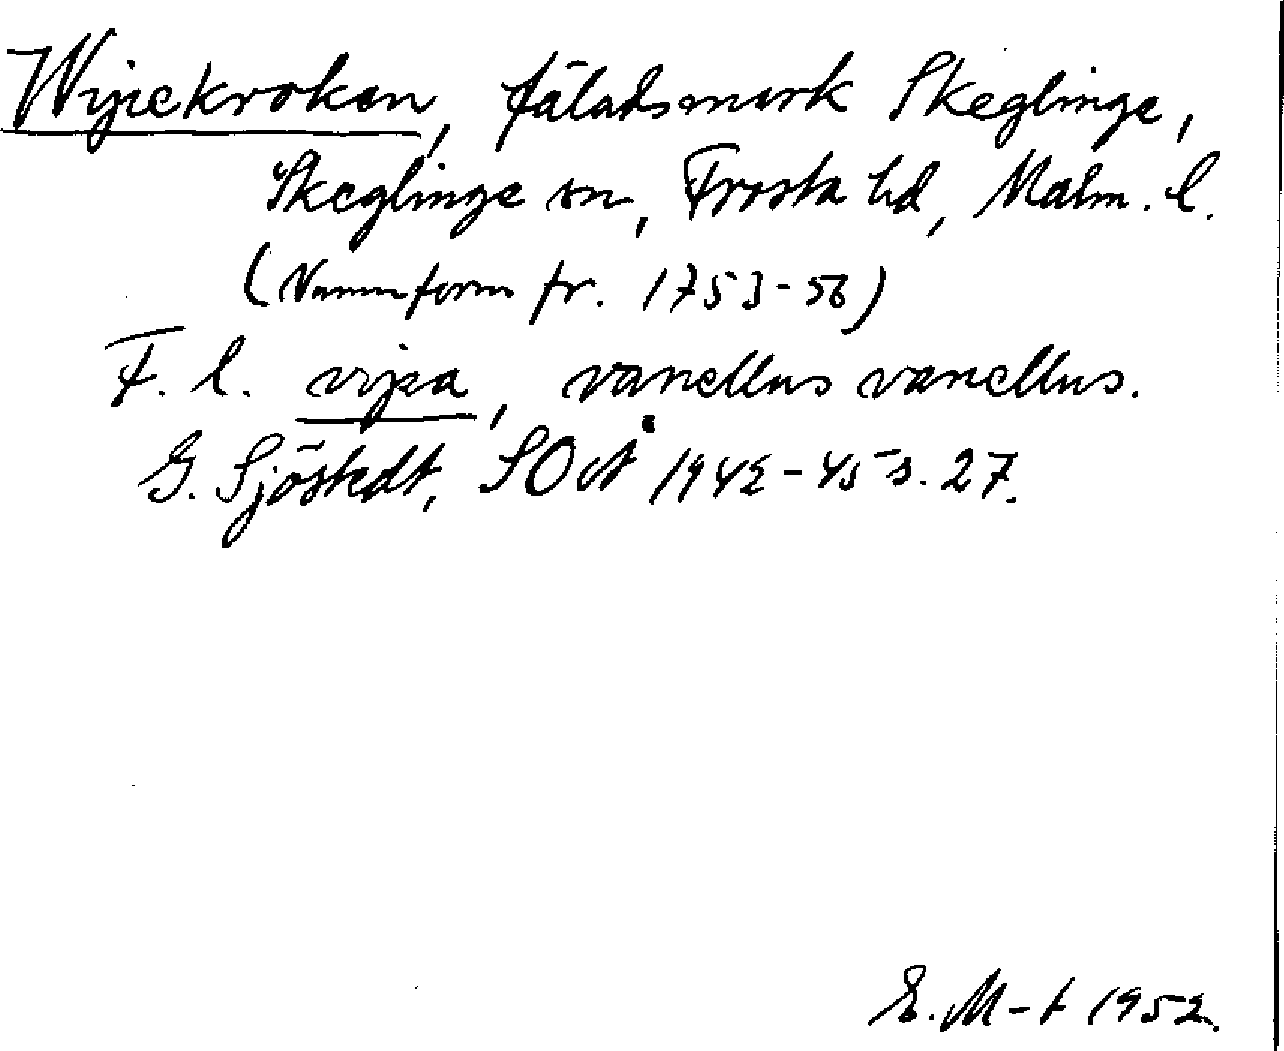 Wijpekroken, fäladsmark Skeglinge,
Skeglinge sn, Frosta hd, Malm. l.
(Namnform fr. 1753-56)
F. l. vipa, vanellus vanellus.
G. Sjöstedt, SOÅ 1942-45 s. 27.
E. M-t 1952.